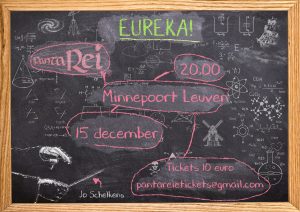 EUREKA!
Panta Rei
20.00
Minnepoort Leuven
15 december
Tickets 10 euro
pantareietickets@gmail.com
Jo Schelkens